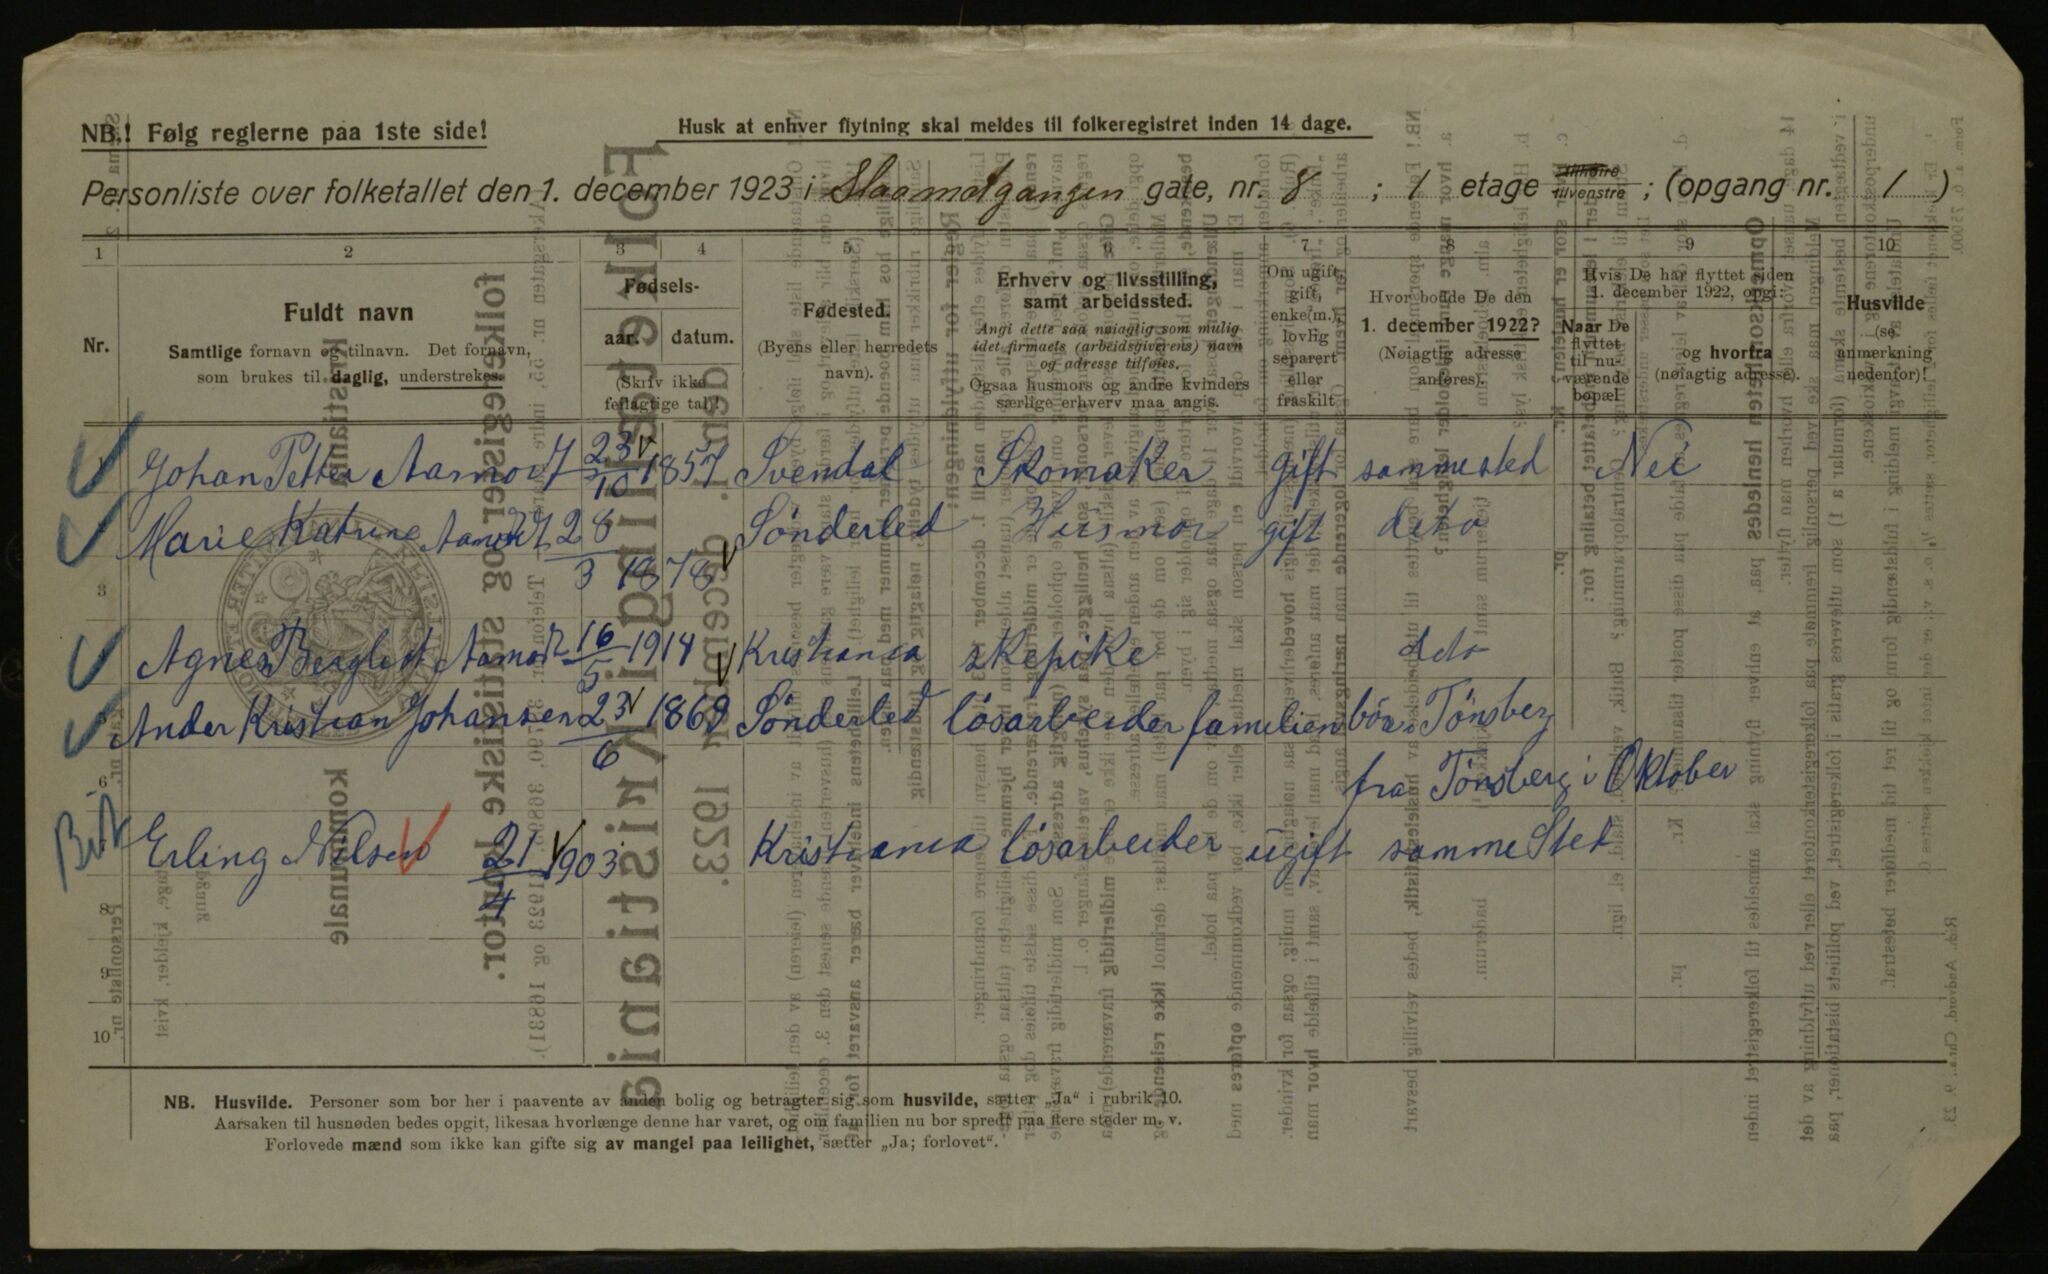 NB.! Følg reglerne paa 1ste side!
Husk at enhver flytning skal meldes til folkeregistret inden 14 dage.
Personliste over folketallet den 1. december 1923 i Maamotgangen gate, nr. 8 ; 1 etage tilhøire tilvenstre ; (opgang nr. 1 )
1 2 3 4 5 6 7 8 9 10
Nr.
Fuldt navn
Samtlige fornavn og tilnavn. Det fornavn,
som brukes til daglig, understrekes.
Fødsels-
aar. datum.
(Skriv ikke
feilagtige tal)
Fødested.
(Byens eller herredets
navn).
Erhverv og livsstilling,
samt arbeidssted.
Angi dette saa nøiagtig som mulig
idet firmaets (arbeidsgiverens) navn
og adresse tilføies.
Ogsaa husmors og andre kvinders
særlige erhverv maa angis.
Om ugift,
gift,
enke(m.),
lovlig
separert
eller
fraskilt.
Hvor bodde De den
1. december 1922?
(Nøiagtig adresse
anføres).
Hvis De har flyttet siden
1. december 1922, opgi:
Naar De
flyttet
til nu-
værende
bopæl
og hvorfra
(nøiagtig adresse).
Husvilde
(se
anmerkning
nedenfor)!
Johan Petter Aamodt 23/10 1857 Svendal Skomaker gift sammested Nei
Marie Katrine Aamodt 28/3 1878 Sönderled Husmor gift deto
3
Agnes Bergliot Aamodt 16/5 1914 Kristiania skepike deto
5 Ander Kristian Johansen 23/6 1869 Sönderled lösarbeider familien bör i Tönsberg
6 fra Tönsberg i Oktober
Erling Nilsen 21/4 1903 Kristiania lösarbeider ugift samme Sted
8
9
10
NB. Husvilde. Personer som bor her i paavente av anden bolig og betragter sig som husvilde, sætter „Ja“ i rubrik 10.
Aarsaken til husnøden bedes opgit, likesaa hvorlænge denne har varet, og om familien nu bor spredt paa flere steder m. v.
Forlovede mænd som ikke kan gifte sig av mangel paa leilighet, sætter „Ja; forlovet“.